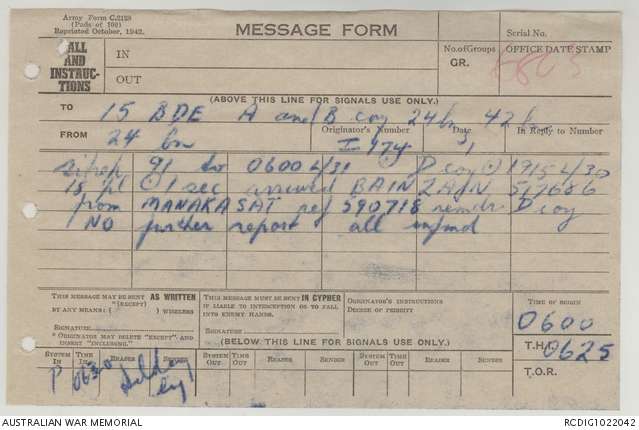 Army Form C.2128
(Pads of 100)
Reprinted October, 1942.
MESSAGE FORM
Serial No.
CALL AND INSTRUCTIONS
IN
OUT
No. of Groups
GR.
OFFICE DATE STAMP
(ABOVE THIS LINE FOR SIGNALS USE ONLY.)
TO 15 BDE A and B coy 24 bn 42 bn
FROM 24 bn
Originator's Number
Date
In Reply to Number
I 474
sitrep 91 to 0600 L/31 D coy 1915 L/30
18 pl 1 sec arrived BAIN 517686
from MANAKASAT ref 590718 remdr D coy
NO further report all infmd
THIS MESSAGE MAY BE SENT AS WRITTEN
(EXCEPT)
BY ANY MEANS: ( ) WIRELESS
SIGNATURE
* ORIGINATOR MAY DELETE "EXCEPT" AND INSERT "INCLUDING."
THIS MESSAGE MUST BE SENT IN CYPHER
IF LIABLE TO INTERCEPTION OR TO FALL INTO ENEMY HANDS.
SIGNATURE
ORIGINATOR'S INSTRUCTIONS
DEGREE OF PRIORITY
TIME OF ORIGIN
0600
(BELOW THIS LINE FOR SIGNALS USE ONLY.)
T.H.I. 0625
T.O.R.
SYSTEM IN TIME IN READER SENDER SYSTEM OUT TIME OUT READER SENDER SYSTEM OUT TIME OUT READER SENDER
P 0630
AUSTRALIAN WAR MEMORIAL
RCDIG1022042